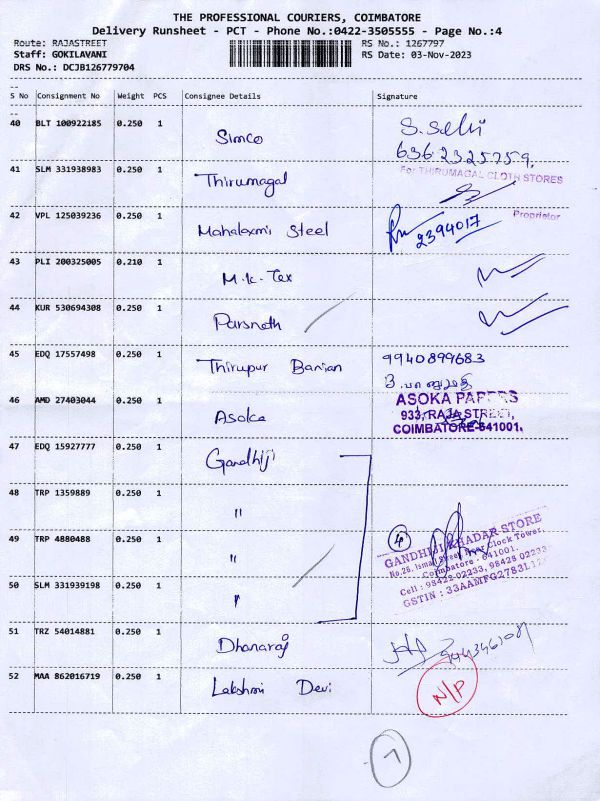 THE PROFESSIONAL COURIERS, COIMBATORE
Delivery Runsheet - PCT - Phone No.:0422-3505555 - Page No.:4
Route: RAJASTREET
Staff: GOKILAVANI
DRS No.: DCJB126779704
RS No.: 1267797
RS Date: 03-Nov-2023
S No Consignment No Weight PCS Consignee Details Signature
40 BLT 100922185 0.250 1 Simco S. Selvi
6362325759.
41 SLM 331938983 0.250 1 Thirumagal For THIRUMAGAL CLOTH STORES
Proprietor
42 VPL 125039236 0.250 1 Mahalaxmi Steel 2394017
43 PLI 200325005 0.210 1 M.K. Tex
44 KUR 530694308 0.250 1 Parsnath
45 EDQ 17557498 0.250 1 Thirupur Banian 9940899683
46 AMD 27403044 0.250 1 Asoka ASOKA PAPERS
933, RAJA STREET,
COIMBATORE-641001.
47 EDQ 15927777 0.250 1 Gandhiji
48 TRP 1359889 0.250 1 "
49 TRP 4880488 0.250 1 " 4
GANDHIJI KHADAR STORE
No.26, Ismail Street, Near Clock Tower,
Coimbatore - 641001.
Cell : 98422-02233, 98428 02233
GSTIN : 33AAMFG2783L1
50 SLM 331939198 0.250 1 "
51 TRZ 54014881 0.250 1 Dhanaraj
52 MAA 862016719 0.250 1 Lakshmi Devi N/P
7